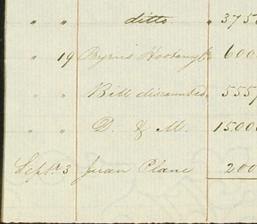 " " ditto " 375
" " 19 Byrnes 600
" " Bill discounted 555
" " D. & M. 15.00
Sept. 3 Juan Clane 200